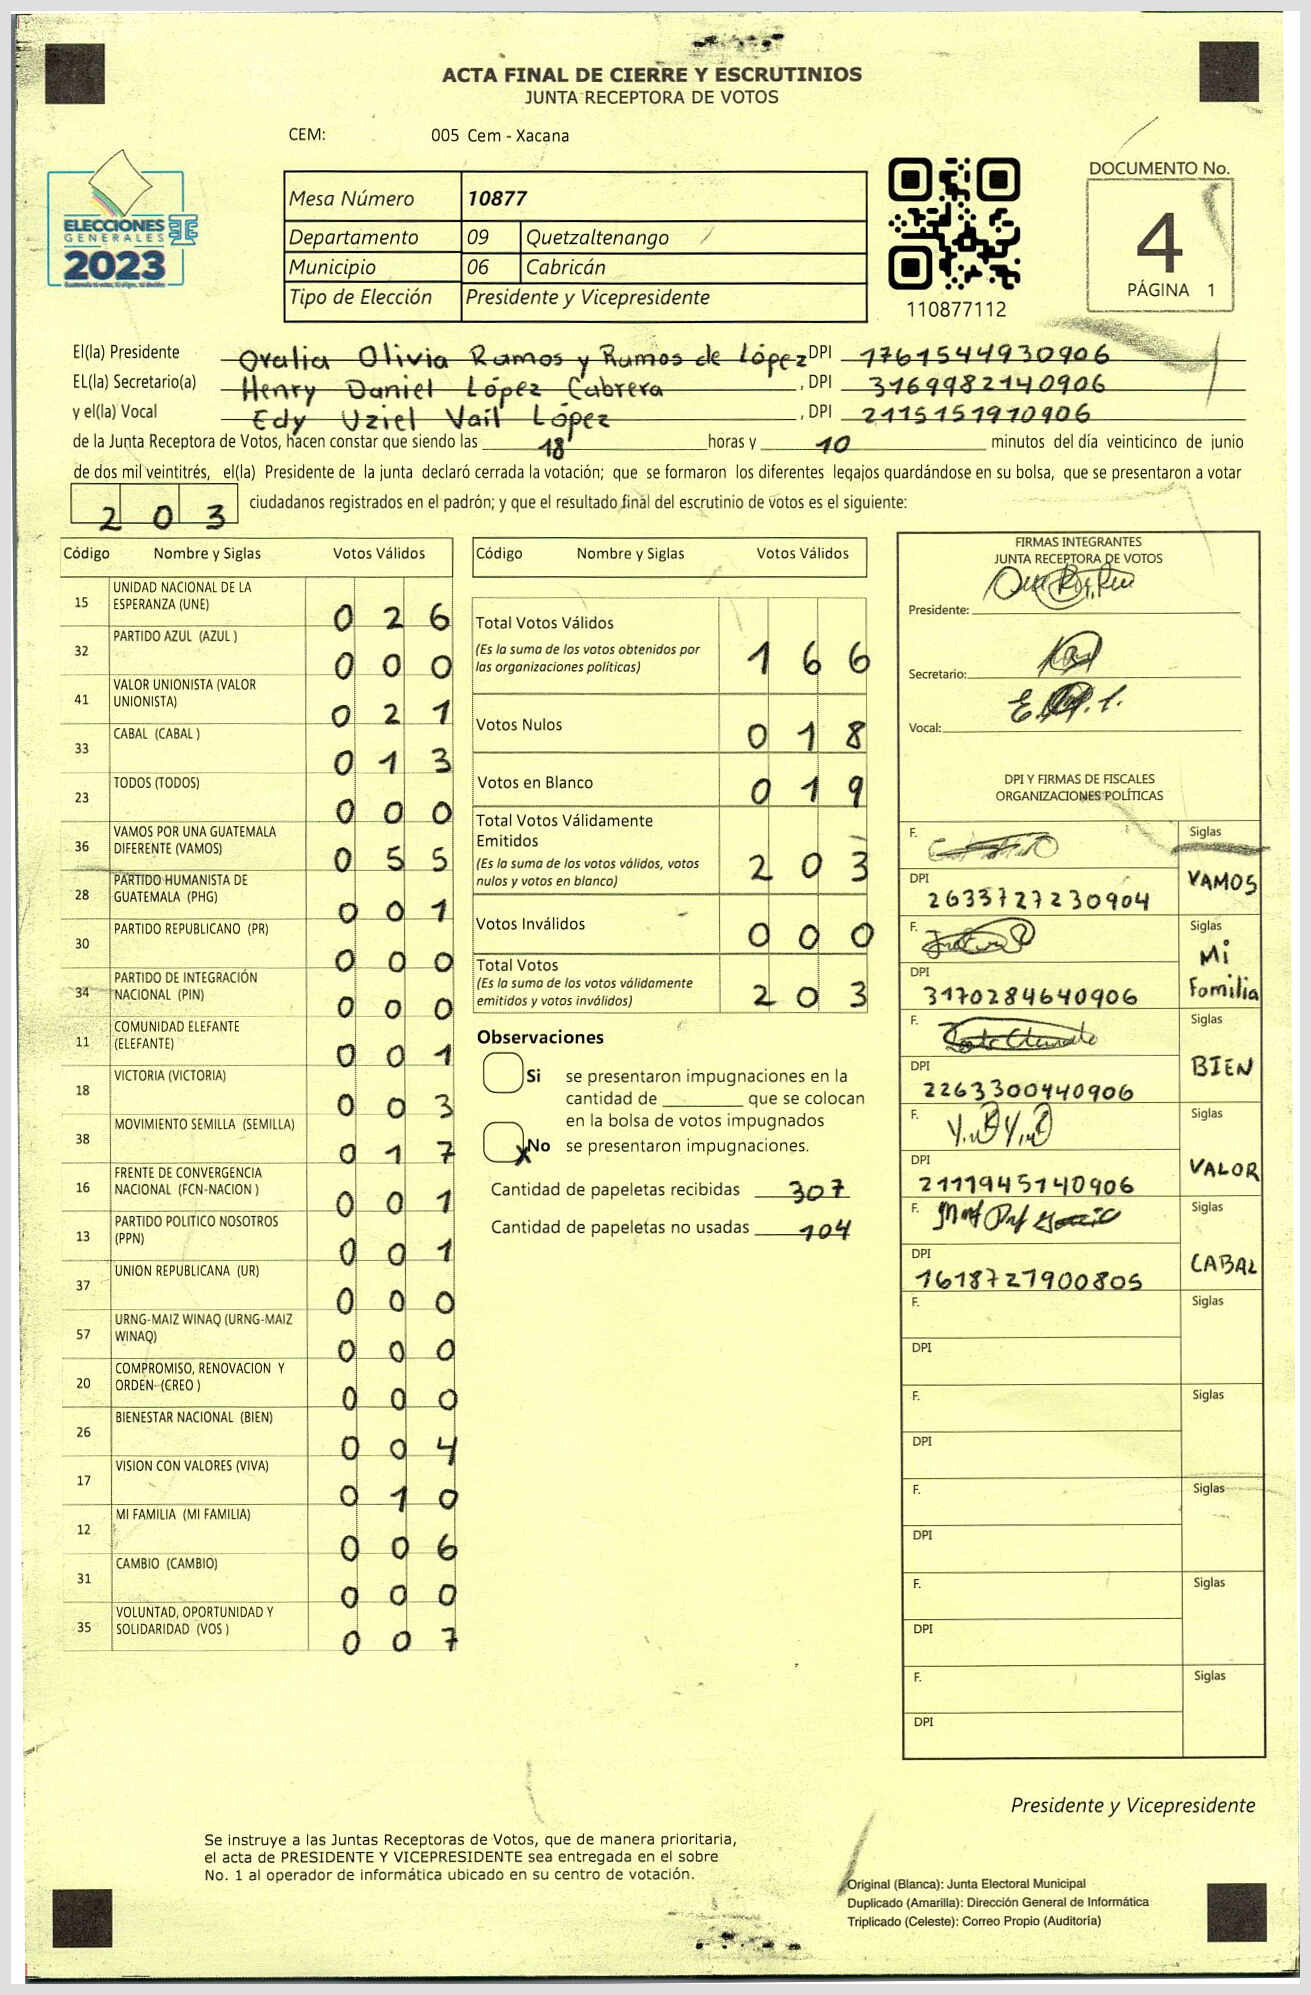 ACTA FINAL DE CIERRE Y ESCRUTINIOS
JUNTA RECEPTORA DE VOTOS
CEM: 005 Cem - Xacana
ELECCIONES
GENERALES
2023
Mesa Número 10877
Departamento 09 Quetzaltenango
Municipio 06 Cabricán
Tipo de Elección Presidente y Vicepresidente
110877112
DOCUMENTO No.
4
PÁGINA 1
El(la) Presidente Oralia Olivia Ramos y Ramos de López DPI 1761544930906
EL(la) Secretario(a) Henry Daniel López Cabrera , DPI 3169982140906
y el(la) Vocal Edy Uziel Vail López , DPI 2115151910906
de la Junta Receptora de Votos, hacen constar que siendo las 18 horas y 10 minutos del día veinticinco de junio
de dos mil veintitrés, el(la) Presidente de la junta declaró cerrada la votación; que se formaron los diferentes legajos quardándose en su bolsa, que se presentaron a votar
2 0 3 ciudadanos registrados en el padrón; y que el resultado final del escrutinio de votos es el siguiente:
Código Nombre y Siglas Votos Válidos
15 UNIDAD NACIONAL DE LA
ESPERANZA (UNE) 0 2 6
32 PARTIDO AZUL (AZUL ) 0 0 0
41 VALOR UNIONISTA (VALOR
UNIONISTA) 0 2 1
33 CABAL (CABAL ) 0 1 3
23 TODOS (TODOS) 0 0 0
36 VAMOS POR UNA GUATEMALA
DIFERENTE (VAMOS) 0 5 5
28 PARTIDO HUMANISTA DE
GUATEMALA (PHG) 0 0 1
30 PARTIDO REPUBLICANO (PR) 0 0 0
34 PARTIDO DE INTEGRACIÓN
NACIONAL (PIN) 0 0 0
11 COMUNIDAD ELEFANTE
(ELEFANTE) 0 0 1
18 VICTORIA (VICTORIA) 0 0 3
38 MOVIMIENTO SEMILLA (SEMILLA) 0 1 7
16 FRENTE DE CONVERGENCIA
NACIONAL (FCN-NACION ) 0 0 1
13 PARTIDO POLITICO NOSOTROS
(PPN) 0 0 1
37 UNION REPUBLICANA (UR) 0 0 0
57 URNG-MAIZ WINAQ (URNG-MAIZ
WINAQ) 0 0 0
20 COMPROMISO, RENOVACION Y
ORDEN (CREO ) 0 0 0
26 BIENESTAR NACIONAL (BIEN) 0 0 4
17 VISION CON VALORES (VIVA) 0 1 0
12 MI FAMILIA (MI FAMILIA) 0 0 6
31 CAMBIO (CAMBIO) 0 0 0
35 VOLUNTAD, OPORTUNIDAD Y
SOLIDARIDAD (VOS ) 0 0 7
Código Nombre y Siglas Votos Válidos
Total Votos Válidos
(Es la suma de los votos obtenidos por
las organizaciones políticas) 1 6 6
Votos Nulos 0 1 8
Votos en Blanco 0 1 9
Total Votos Válidamente
Emitidos
(Es la suma de los votos válidos, votos
nulos y votos en blanco) 2 0 3
Votos Inválidos 0 0 0
Total Votos
(Es la suma de los votos válidamente
emitidos y votos inválidos) 2 0 3
Observaciones
Si se presentaron impugnaciones en la
cantidad de ________ que se colocan
en la bolsa de votos impugnados
X No se presentaron impugnaciones.
Cantidad de papeletas recibidas 307
Cantidad de papeletas no usadas 104
FIRMAS INTEGRANTES
JUNTA RECEPTORA DE VOTOS
Presidente:
Secretario:
Vocal:
DPI Y FIRMAS DE FISCALES
ORGANIZACIONES POLÍTICAS
F. Siglas
DPI 2633727230904 VAMOS
F. Siglas
DPI 3170284640906 Mi Familia
F. Siglas
DPI 2263300440906 BIEN
F. Siglas
DPI 2111945140906 VALOR
F. Siglas
DPI 1618727900805 CABAL
F. Siglas
DPI
F. Siglas
DPI
F. Siglas
DPI
F. Siglas
DPI
F. Siglas
DPI
Presidente y Vicepresidente
Se instruye a las Juntas Receptoras de Votos, que de manera prioritaria,
el acta de PRESIDENTE Y VICEPRESIDENTE sea entregada en el sobre
No. 1 al operador de informática ubicado en su centro de votación.
Original (Blanca): Junta Electoral Municipal
Duplicado (Amarilla): Dirección General de Informática
Triplicado (Celeste): Correo Propio (Auditoría)